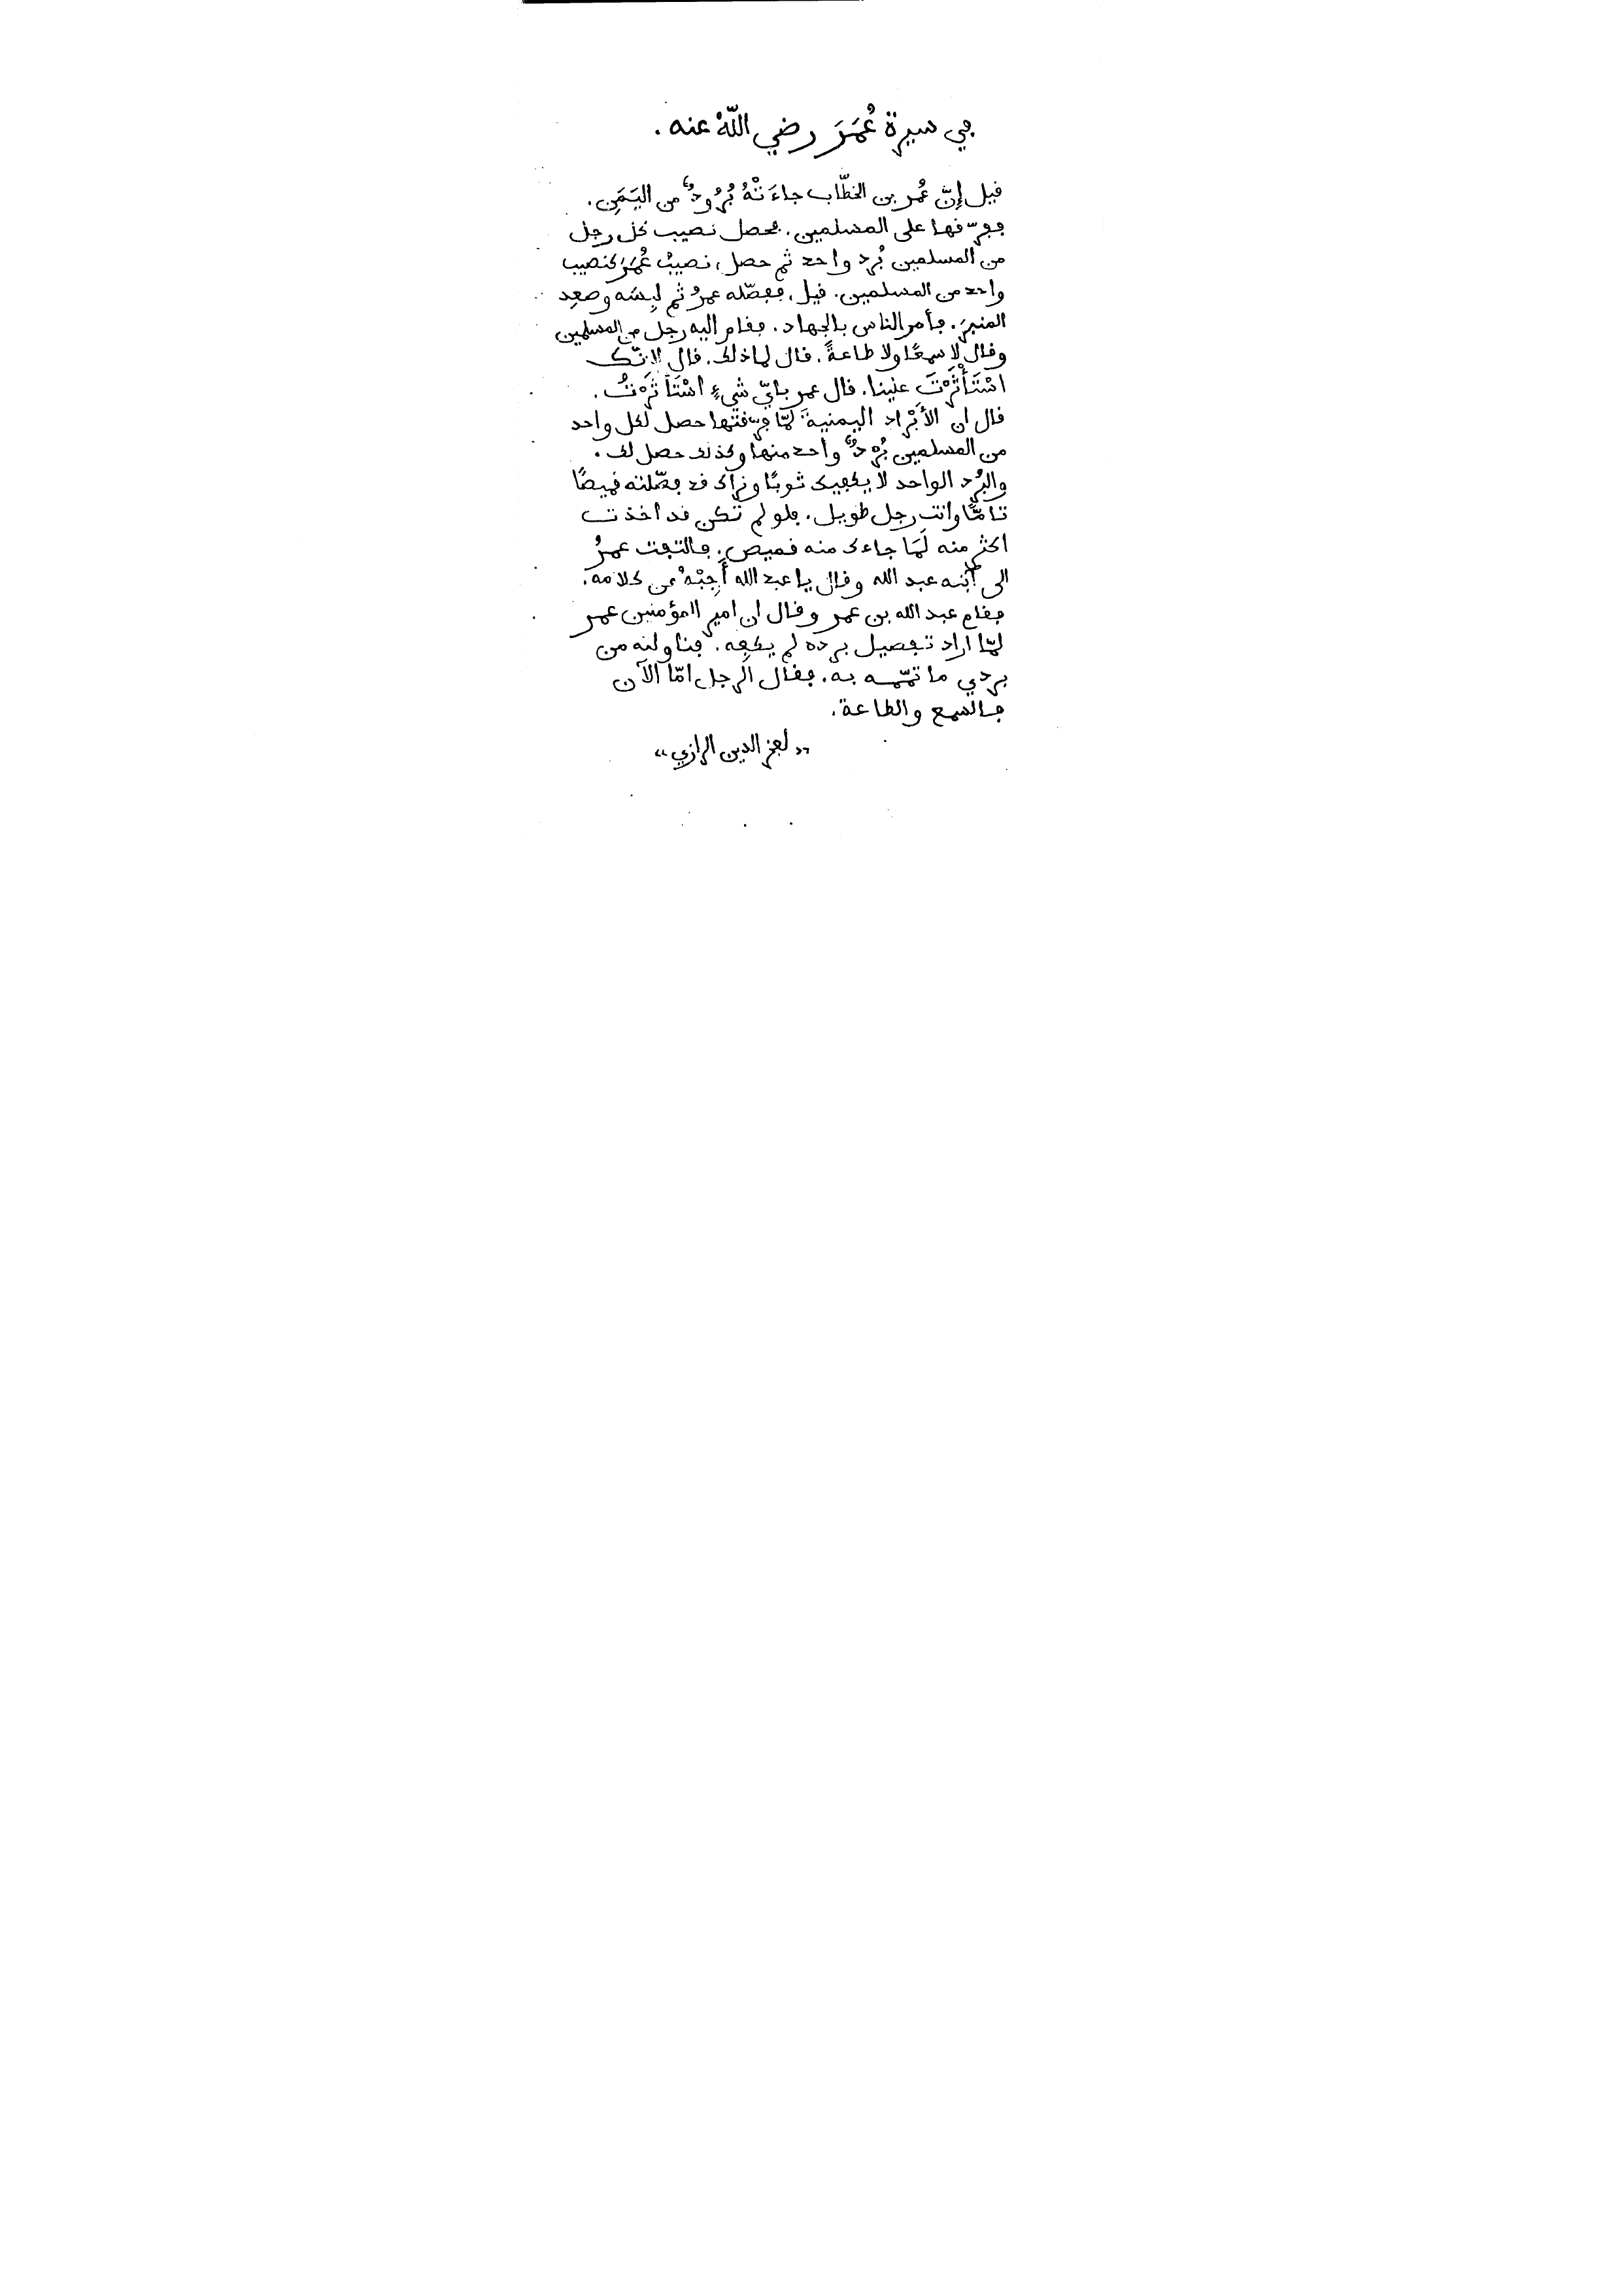 في سيرة عُمَرَ رضي اللّهُ عنه.
قيل إنّ عُمر بن الخطّاب جاءَتْهُ بُرُودٌ من اليَمَنِ.
ففرّقها على المسلمين. فحصل نصيب كل رجل
من المسلمين بُرد واحد ثم حصل، نصيبُ عُمَرَ كنصيب
واحد من المسلمين. قيل، ففصّله عمرُ ثم لبِسَه وصعِد
المنبرَ. فأمر الناس بالجهاد. فقام اليه رجل من المسلمين
وقال لا سمعًا ولا طاعةً. قال لماذلك. قال لانّك
اسْتَأْثَرْتَ علينا. قال عمر بايّ شيءٍ اسْتَأثَرْتُ.
قال ان الأبْراد اليمنيةَ لمّا فرّقتها حصل لكل واحد
من المسلمين بُرْدٌ واحد منها وكذلك حصل لك.
والبُرد الواحد لا يكفيك ثوبًا ونراك قد فصّلته قميصًا
تامًّا وانت رجل طويل. فلو لم تكن قد اخذت
اكثر منه لَمَا جاءك منه قميص. فالتفت عمرُ
الى ٱبْنه عبد الله وقال يا عبد الله أَجِبْهُ عن كلامه.
فقام عبد الله بن عمر وقال ان امير المؤمنين عمر
لمّا اراد تفصيل برده لم يكفِه. فناولته من
بردي ما تمّمه به. فقال الرجل امّا الآن
فالسمع والطاعة.
„لفخر الدين الرازي“